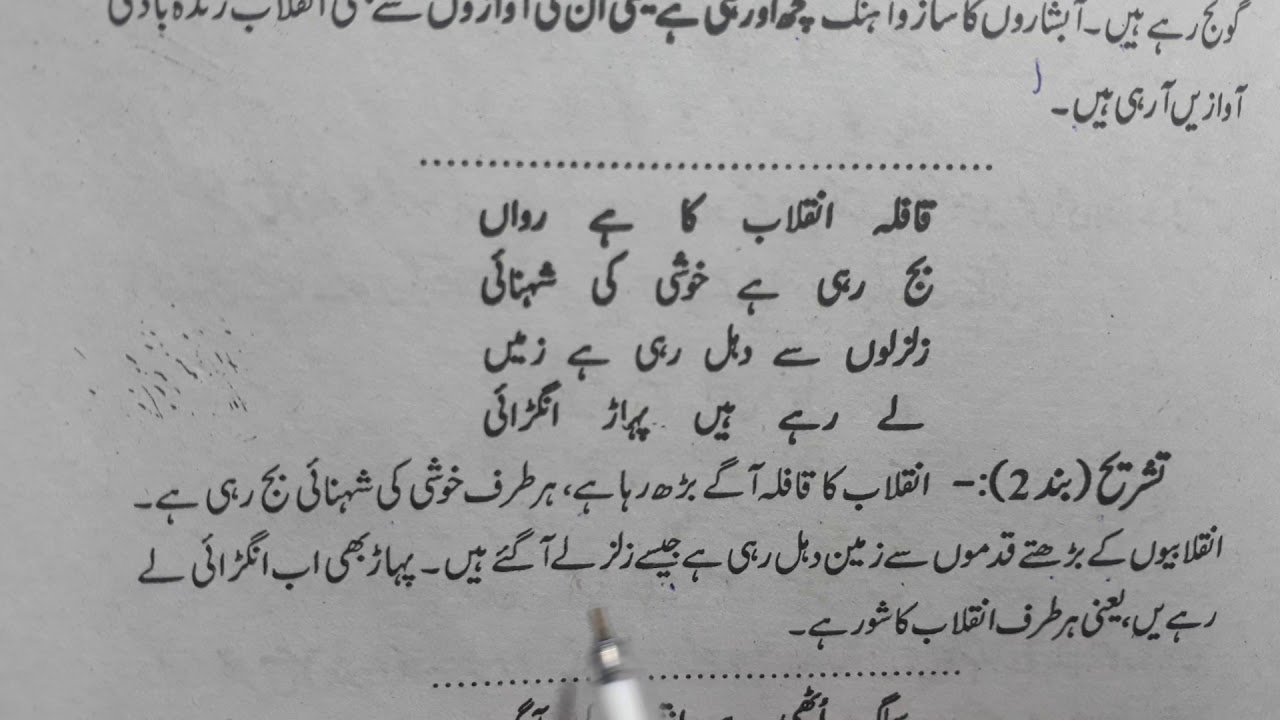 گونج رہے ہیں۔ آبشاروں کا ساز و آہنگ کچھ اور ہی ہے یعنی ان کی آوازوں سے بھی انقلاب زندہ باد کی
آوازیں آرہی ہیں۔
قافلہ انقلاب کا ہے رواں
بج رہی ہے خوشی کی شہنائی
زلزلوں سے دہل رہی ہے زمیں
لے رہے ہیں پہاڑ انگڑائی
تشریح (بند 2):- انقلاب کا قافلہ آگے بڑھ رہا ہے، ہر طرف خوشی کی شہنائی بج رہی ہے۔
انقلابیوں کے بڑھتے قدموں سے زمین دہل رہی ہے جیسے زلزلے آگئے ہیں۔ پہاڑ بھی اب انگڑائی لے
رہے یں، یعنی ہر طرف انقلاب کا شور ہے۔